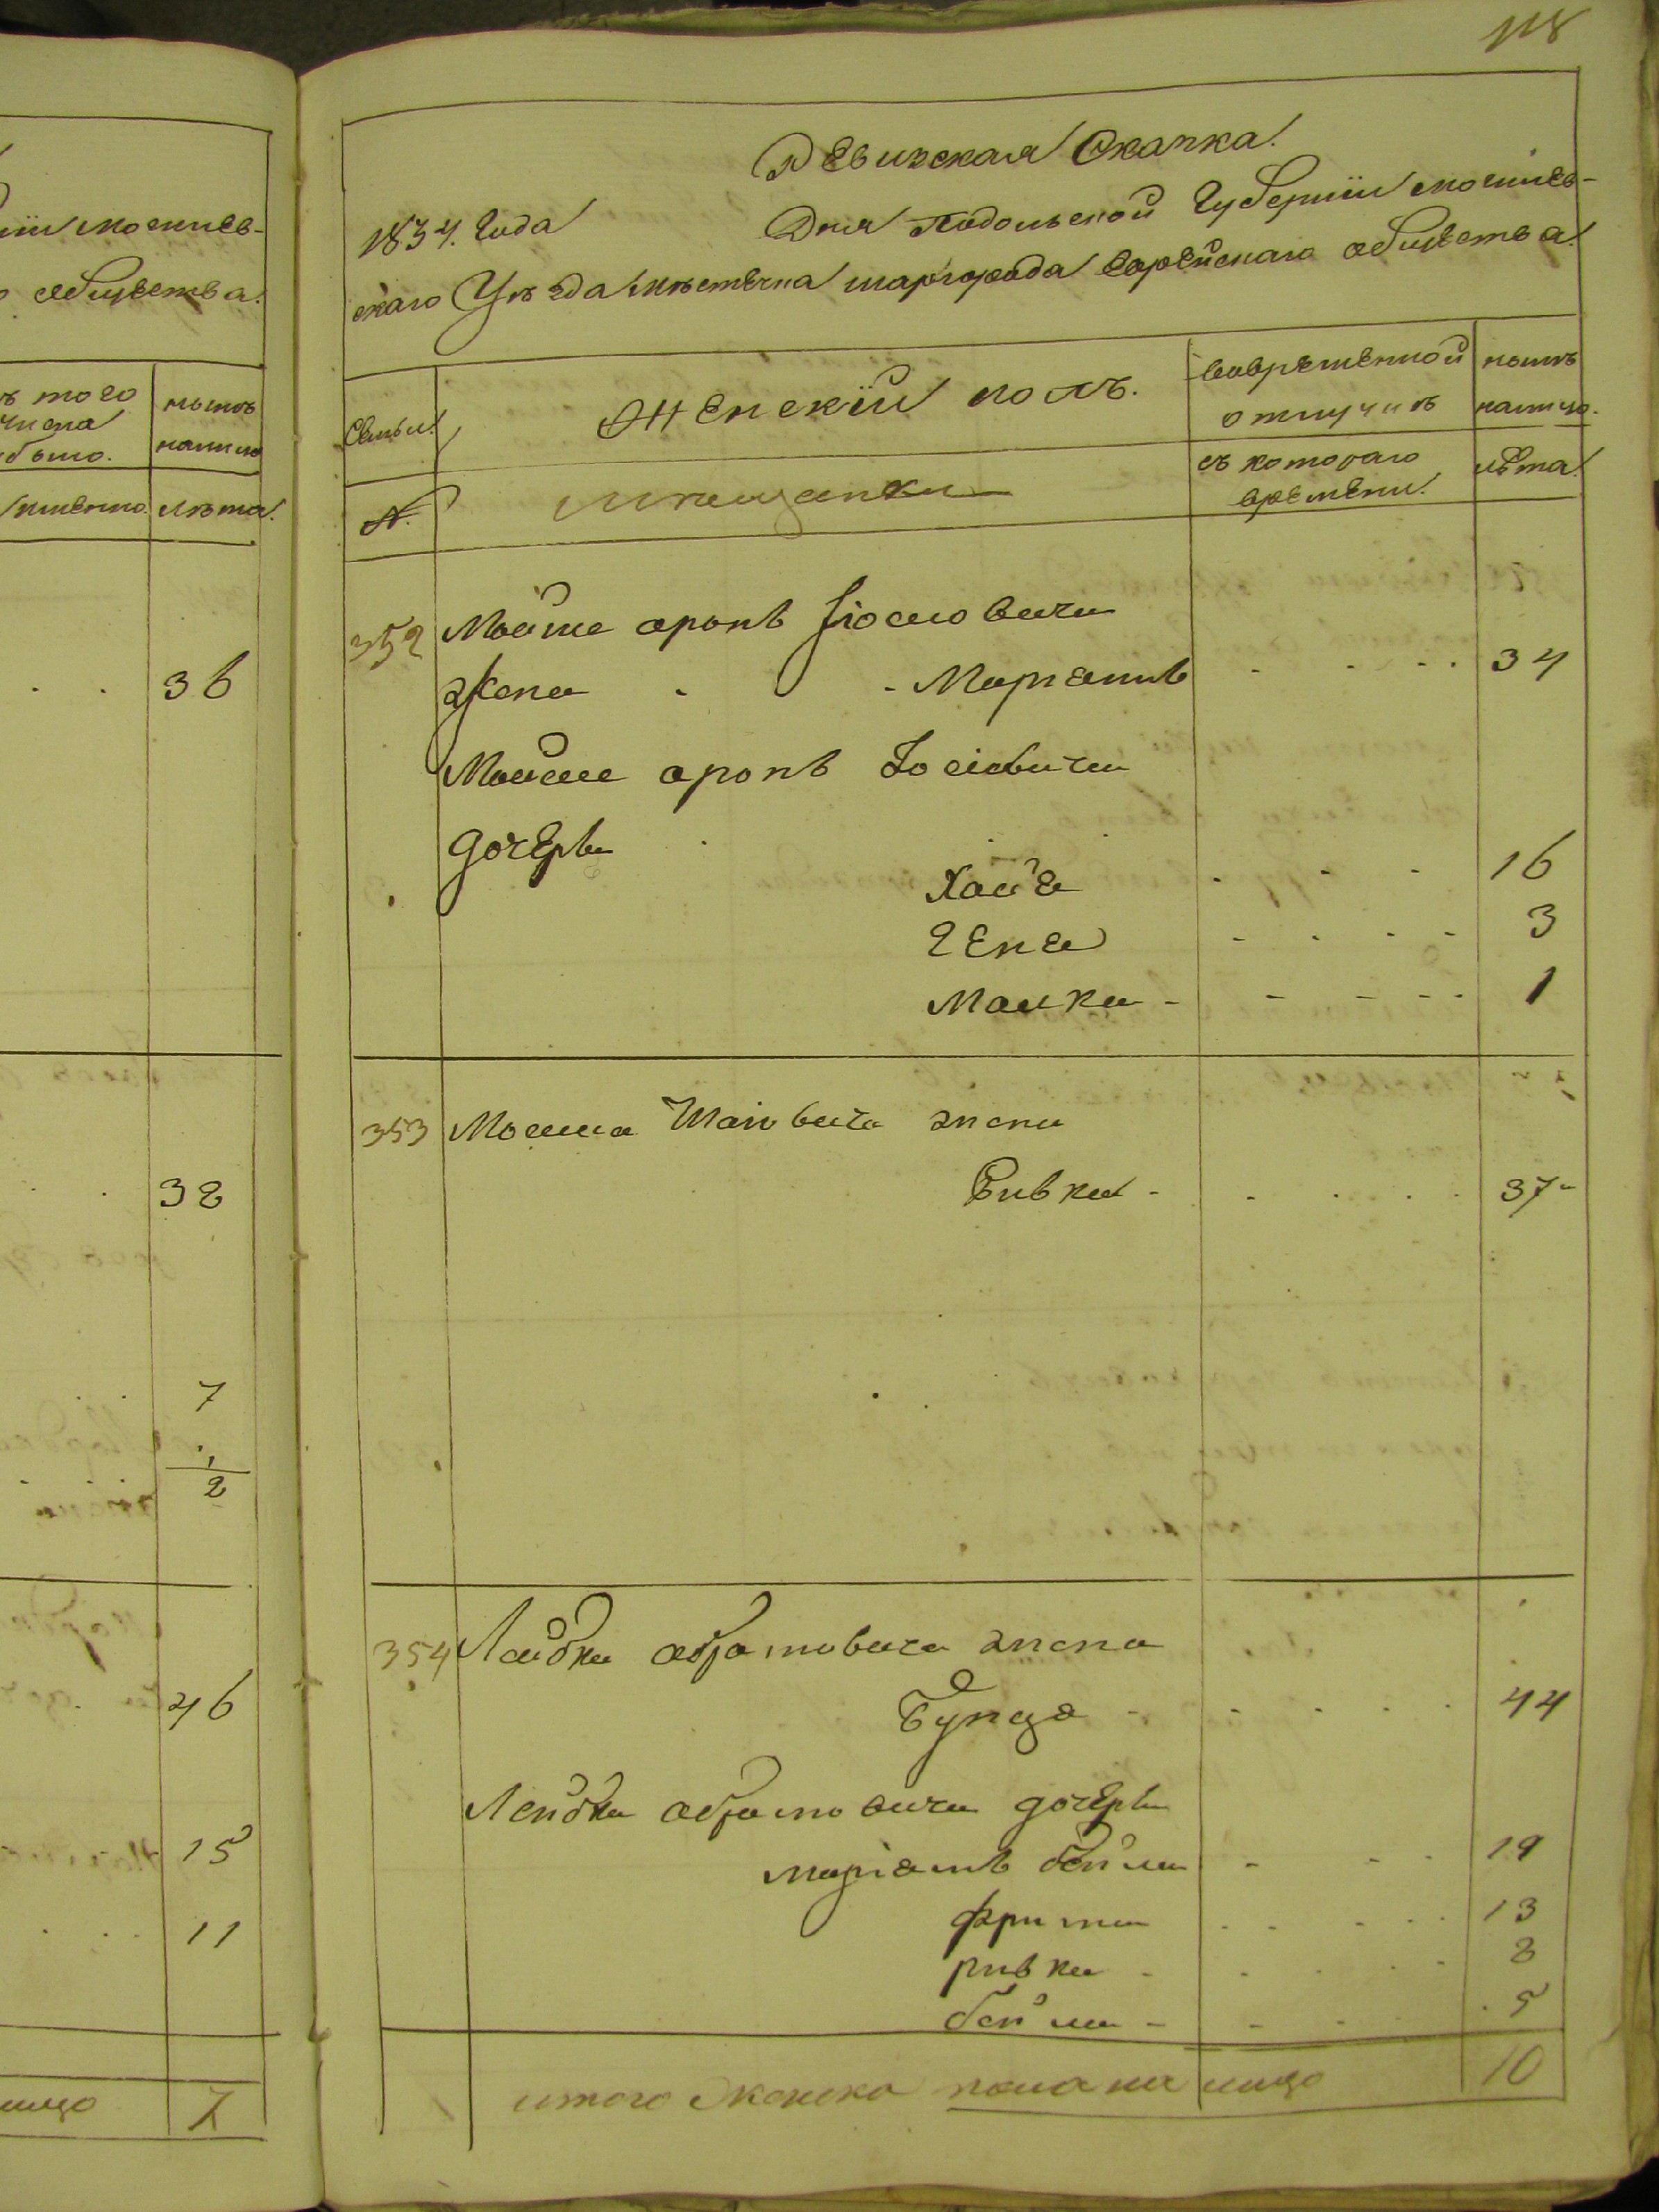 118
Ревизская Скаска.
1834. Года Дня Подольской Губернии могилев-
скаго Уѣзда мѣстечка шаргорода Еврейскаго общества.
Семьи. Женскій полъ. вовремѣнной нынѣ
отлучкѣ налицо.
№. мѣщанки съ котораго лѣта.
времѣни.
352 Мошле аронъ Іосіовича
Жена - Маріамъ - - - - 34
Мошле аронъ Іосіовича
дочѣри
Хайа - - - 16
Гена - - - - 3
Малка - - - - 1
353 Мошка Шаіовича жена
Ривка - - - - 37
354 Лейбки абрамовича жена
Бунця - - - - 44
Лейбки абрамовича дочѣри
маріамъ бейла - - - 19
фрима - - - - 13
ривка - - - - 8
бейла - - - 5
итого женска пола на лицо 10
ніи могилев-
общества.
ъ того нынѣ
числа налицо
было.
лѣта.
36
38
7
2
46
15
11
лицо 7